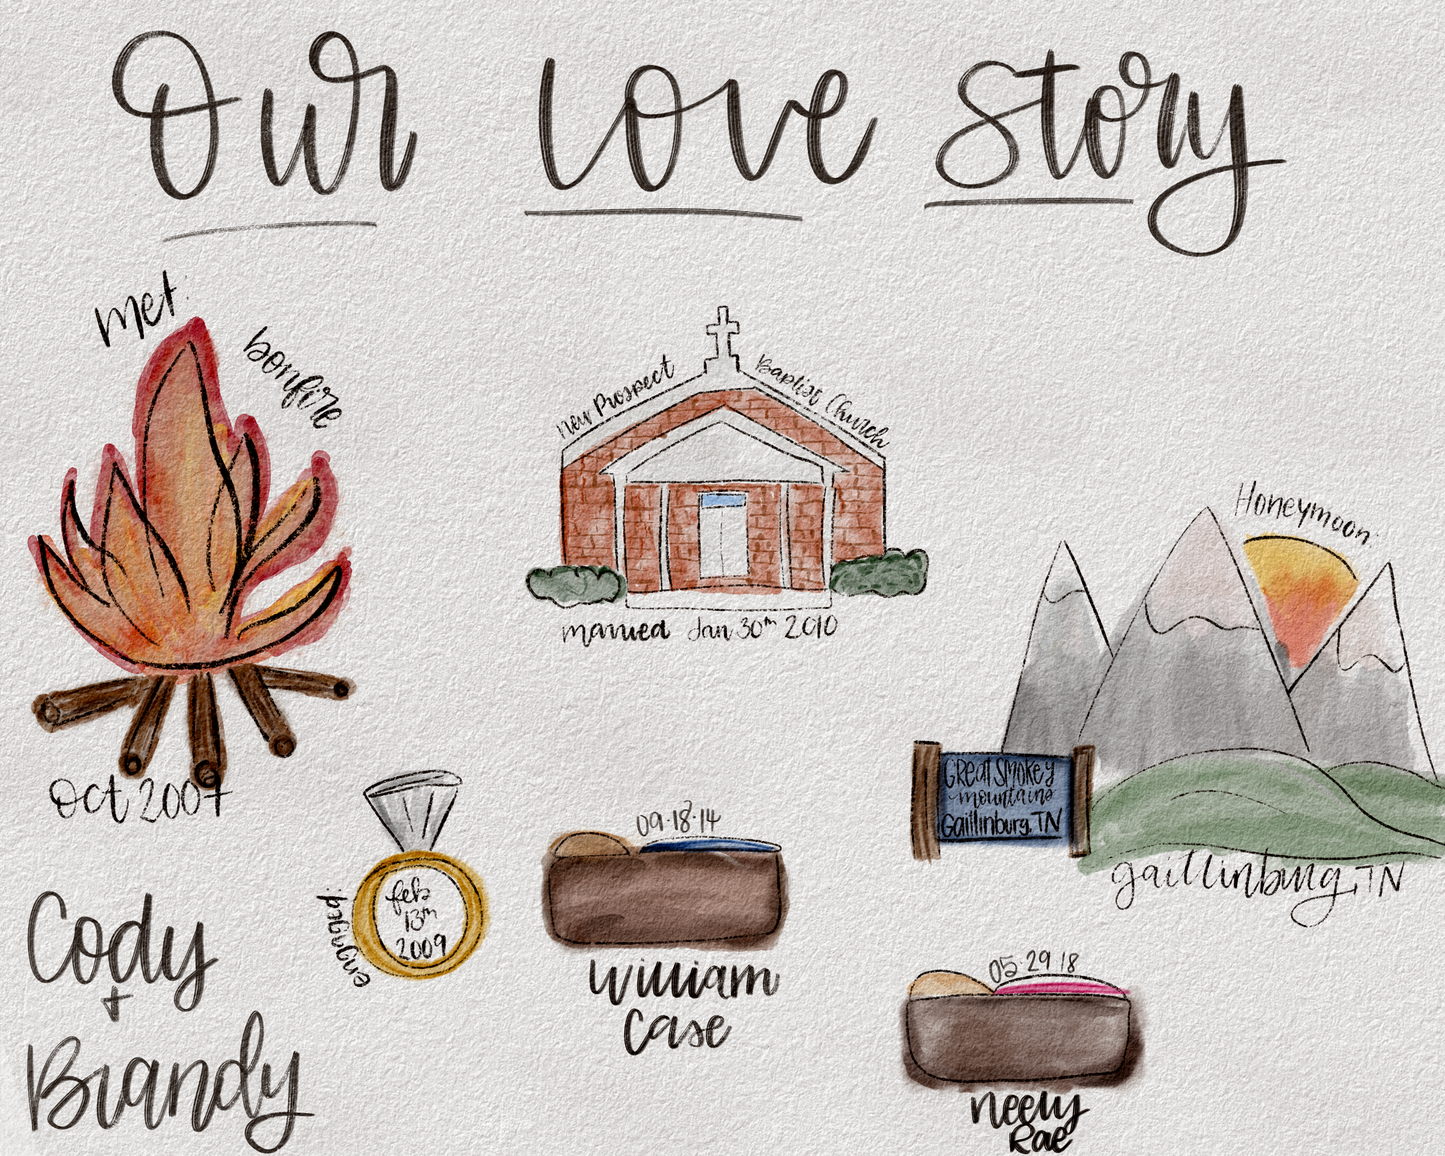 Our love story
met:
bonfire
oct 2007
New Prospect Baptist Church
married Jan 30th 2010
Honeymoon:
Great Smokey
mountains
Gaitlinburg, TN
gaitlinburg, TN
engaged:
feb
13th
2009
Cody
+
Brandy
09.18.14
William
Case
05.29.18
Neely
Rae